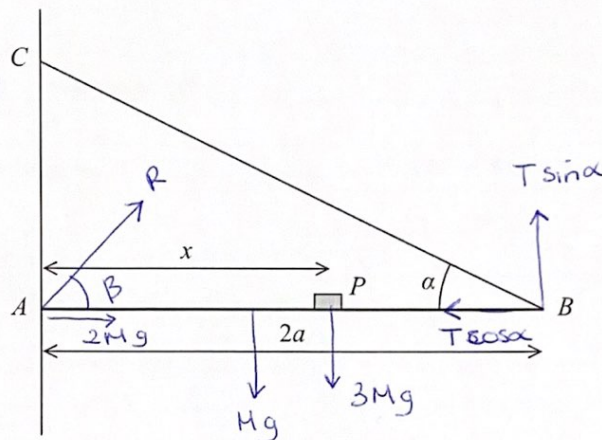 C
T sinα
R
x
β
P
α
A
B
2Mg
2a
Tcosα
3Mg
Mg